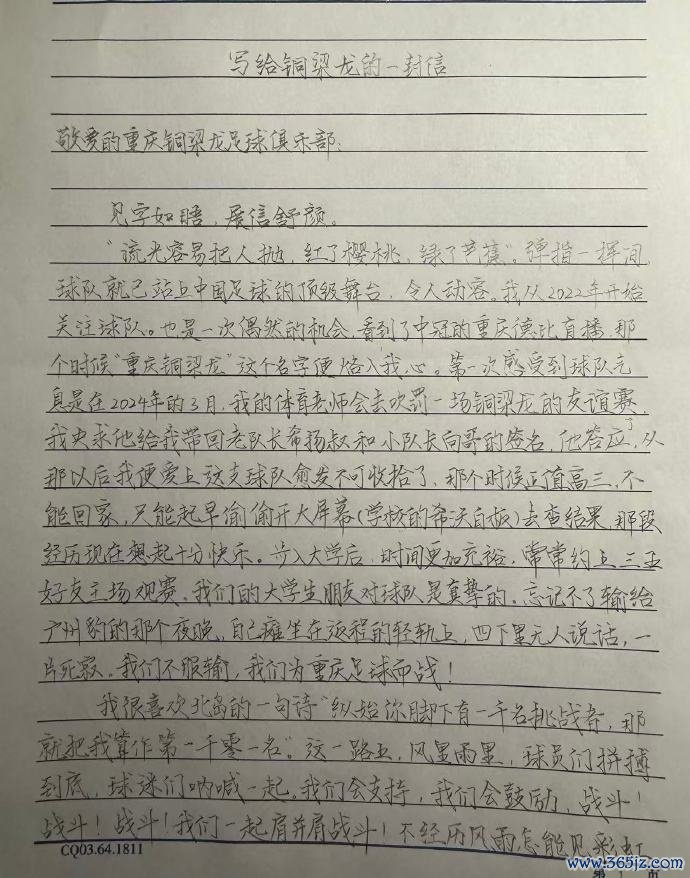 写给铜梁龙的一封信
敬爱的重庆铜梁龙足球俱乐部：
见字如晤，展信舒颜。
“流光容易把人抛，红了樱桃，绿了芭蕉”。弹指一挥间，
球队就已站上中国足球的顶级舞台，令人动容。我从2022年开始
关注球队。也是一次偶然的机会，看到了中冠的重庆德比直播，那
个时候“重庆铜梁龙”这个名字便烙入我心。第一次感受到球队气
息是在2024年的3月，我的体育老师会去吹罚一场铜梁龙的友谊赛，
我央求他给我带回老队长希扬叔和小队长向哥的签名，他答应了，从
那以后我便爱上这支球队愈发不可收拾了，那个时候正值高三，不
能回家，只能起早偷偷开大屏幕（学校的希沃白板）去查结果，那段
经历现在想起十分快乐。步入大学后，时间更加充裕，常常约上三五
好友主场观赛，我们的大学生朋友对球队是真挚的。忘记不了输给
广州豹的那个夜晚，自己瘫坐在返程的轻轨上，四下里无人说话，一
片死寂。我们不服输，我们为重庆足球而战！
我很喜欢北岛的一句诗“纵始你脚下有一千名挑战者，那
就把我算作第一千零一名”。这一路上，风里雨里，球员们拼搏
到底，球迷们呐喊一起。我们会支持，我们会鼓励，战斗！
战斗！战斗！我们一起肩并肩战斗！不经历风雨怎能见彩虹
CQ03.64.1811
第 1 页
www.365jz.com